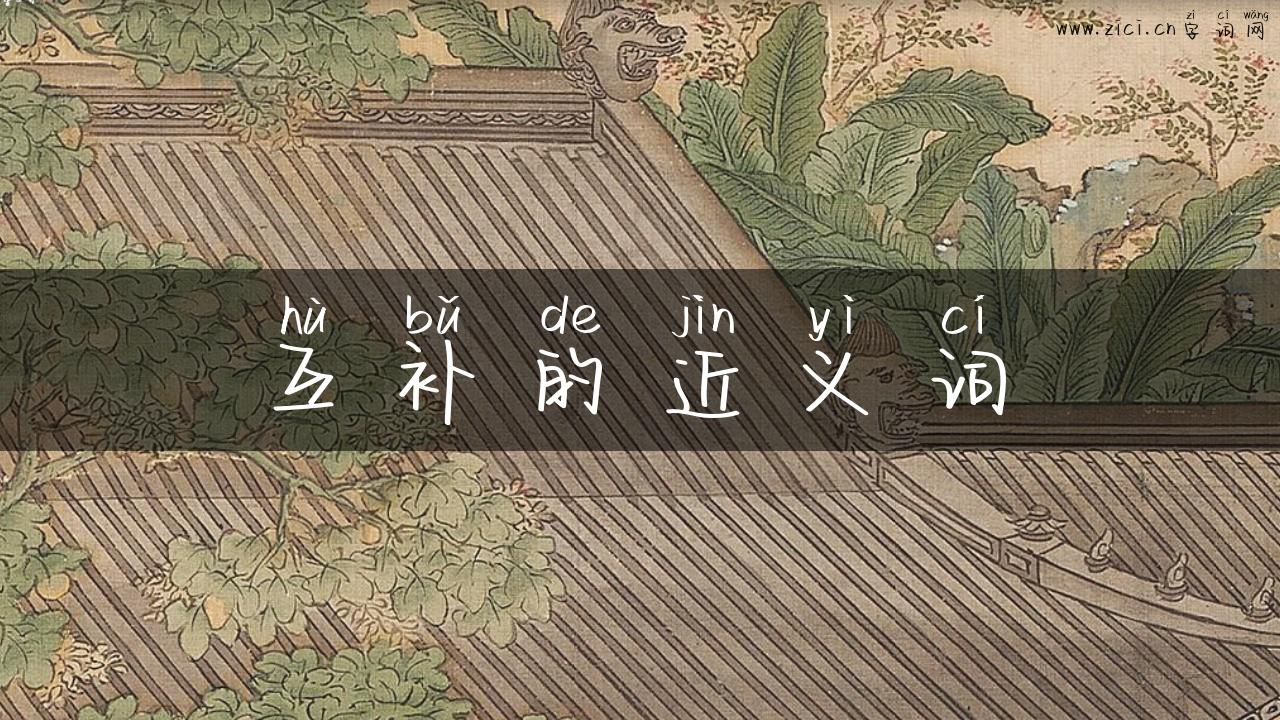 zì cí wǎng
www.zici.cn 字词网
hù bǔ de jìn yì cí
互补的近义词